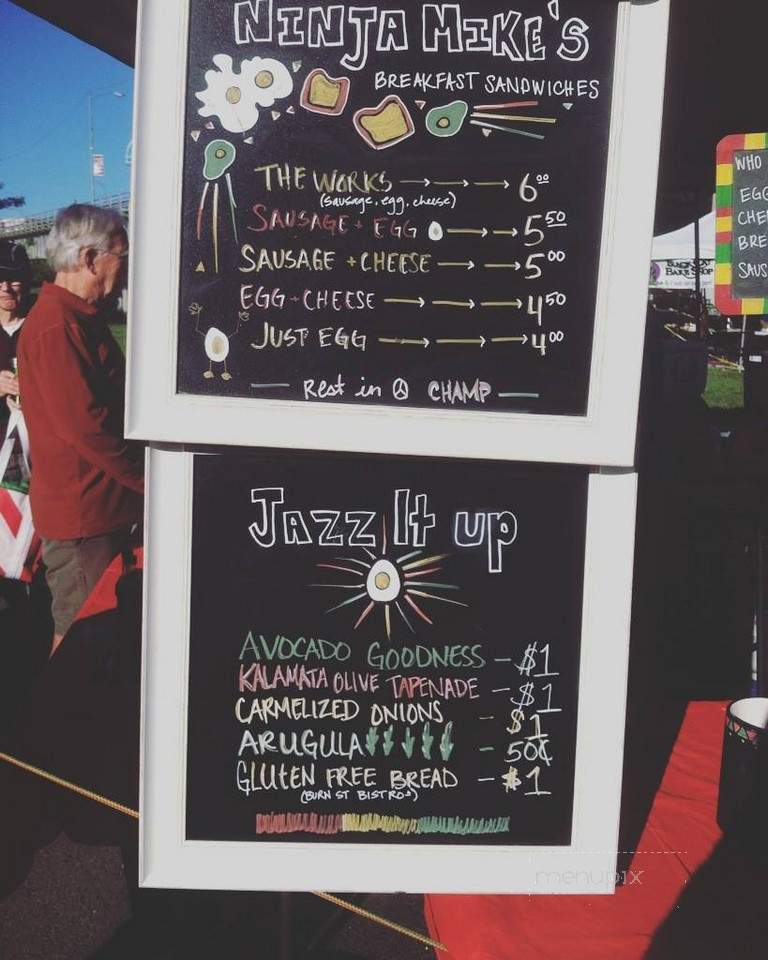 NINJA MIKE'S
BREAKFAST SANDWICHES
THE WORKS 6⁰⁰
(sausage, egg, cheese)
SAUSAGE + EGG 5⁵⁰
SAUSAGE + CHEESE 5⁰⁰
EGG + CHEESE 4⁵⁰
JUST EGG 4⁰⁰
Rest in ☮ CHAMP
Jazz It up
AVOCADO GOODNESS - $1
KALAMATA OLIVE TAPENADE - $1
CARMELIZED ONIONS - $1
ARUGULA - 50¢
GLUTEN FREE BREAD - $1
(BURN ST BISTRO)
WHO
EGG
CHE
BRE
SAUS
menupix